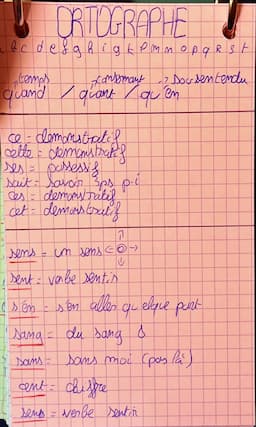 ORTOGRAPHE
b c d e f g h i g k l m n o p q R S t
→ temps → concernant → sousentendu
quand / quant / qu'en
ce = demonstratif
cette = demonstratif
ses = possessif
sait = savoir 3ps p.i
ces = demonstratif
cet = demonstratif
sens = un sens
sent = verbe sentir
s'en = s'en aller quelque part
sang = du sang
sans = sans moi (pas là)
cent = chiffre
sens = verbe sentir